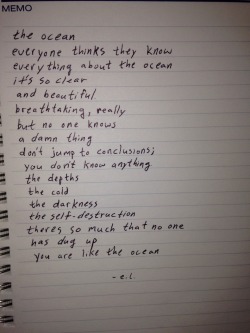 MEMO
the ocean
everyone thinks they know
everything about the ocean
it's so clear
and beautiful
breathtaking, really
but no one knows
a damn thing
don't jump to conclusions;
you don't know anything
the depths
the cold
the darkness
the self-destruction
theres so much that no one
has dug up
you are like the ocean
- e.l.